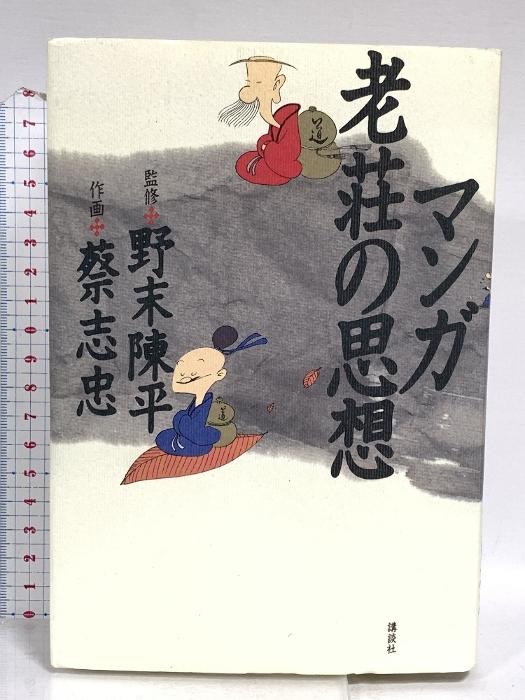 マンガ
老荘の思想
監修 野末陳平
作画 蔡志忠
道
道
講談社
8
7
6
5
4
3
2
1
0
9
8
7
6
5
4
3
2
1
0